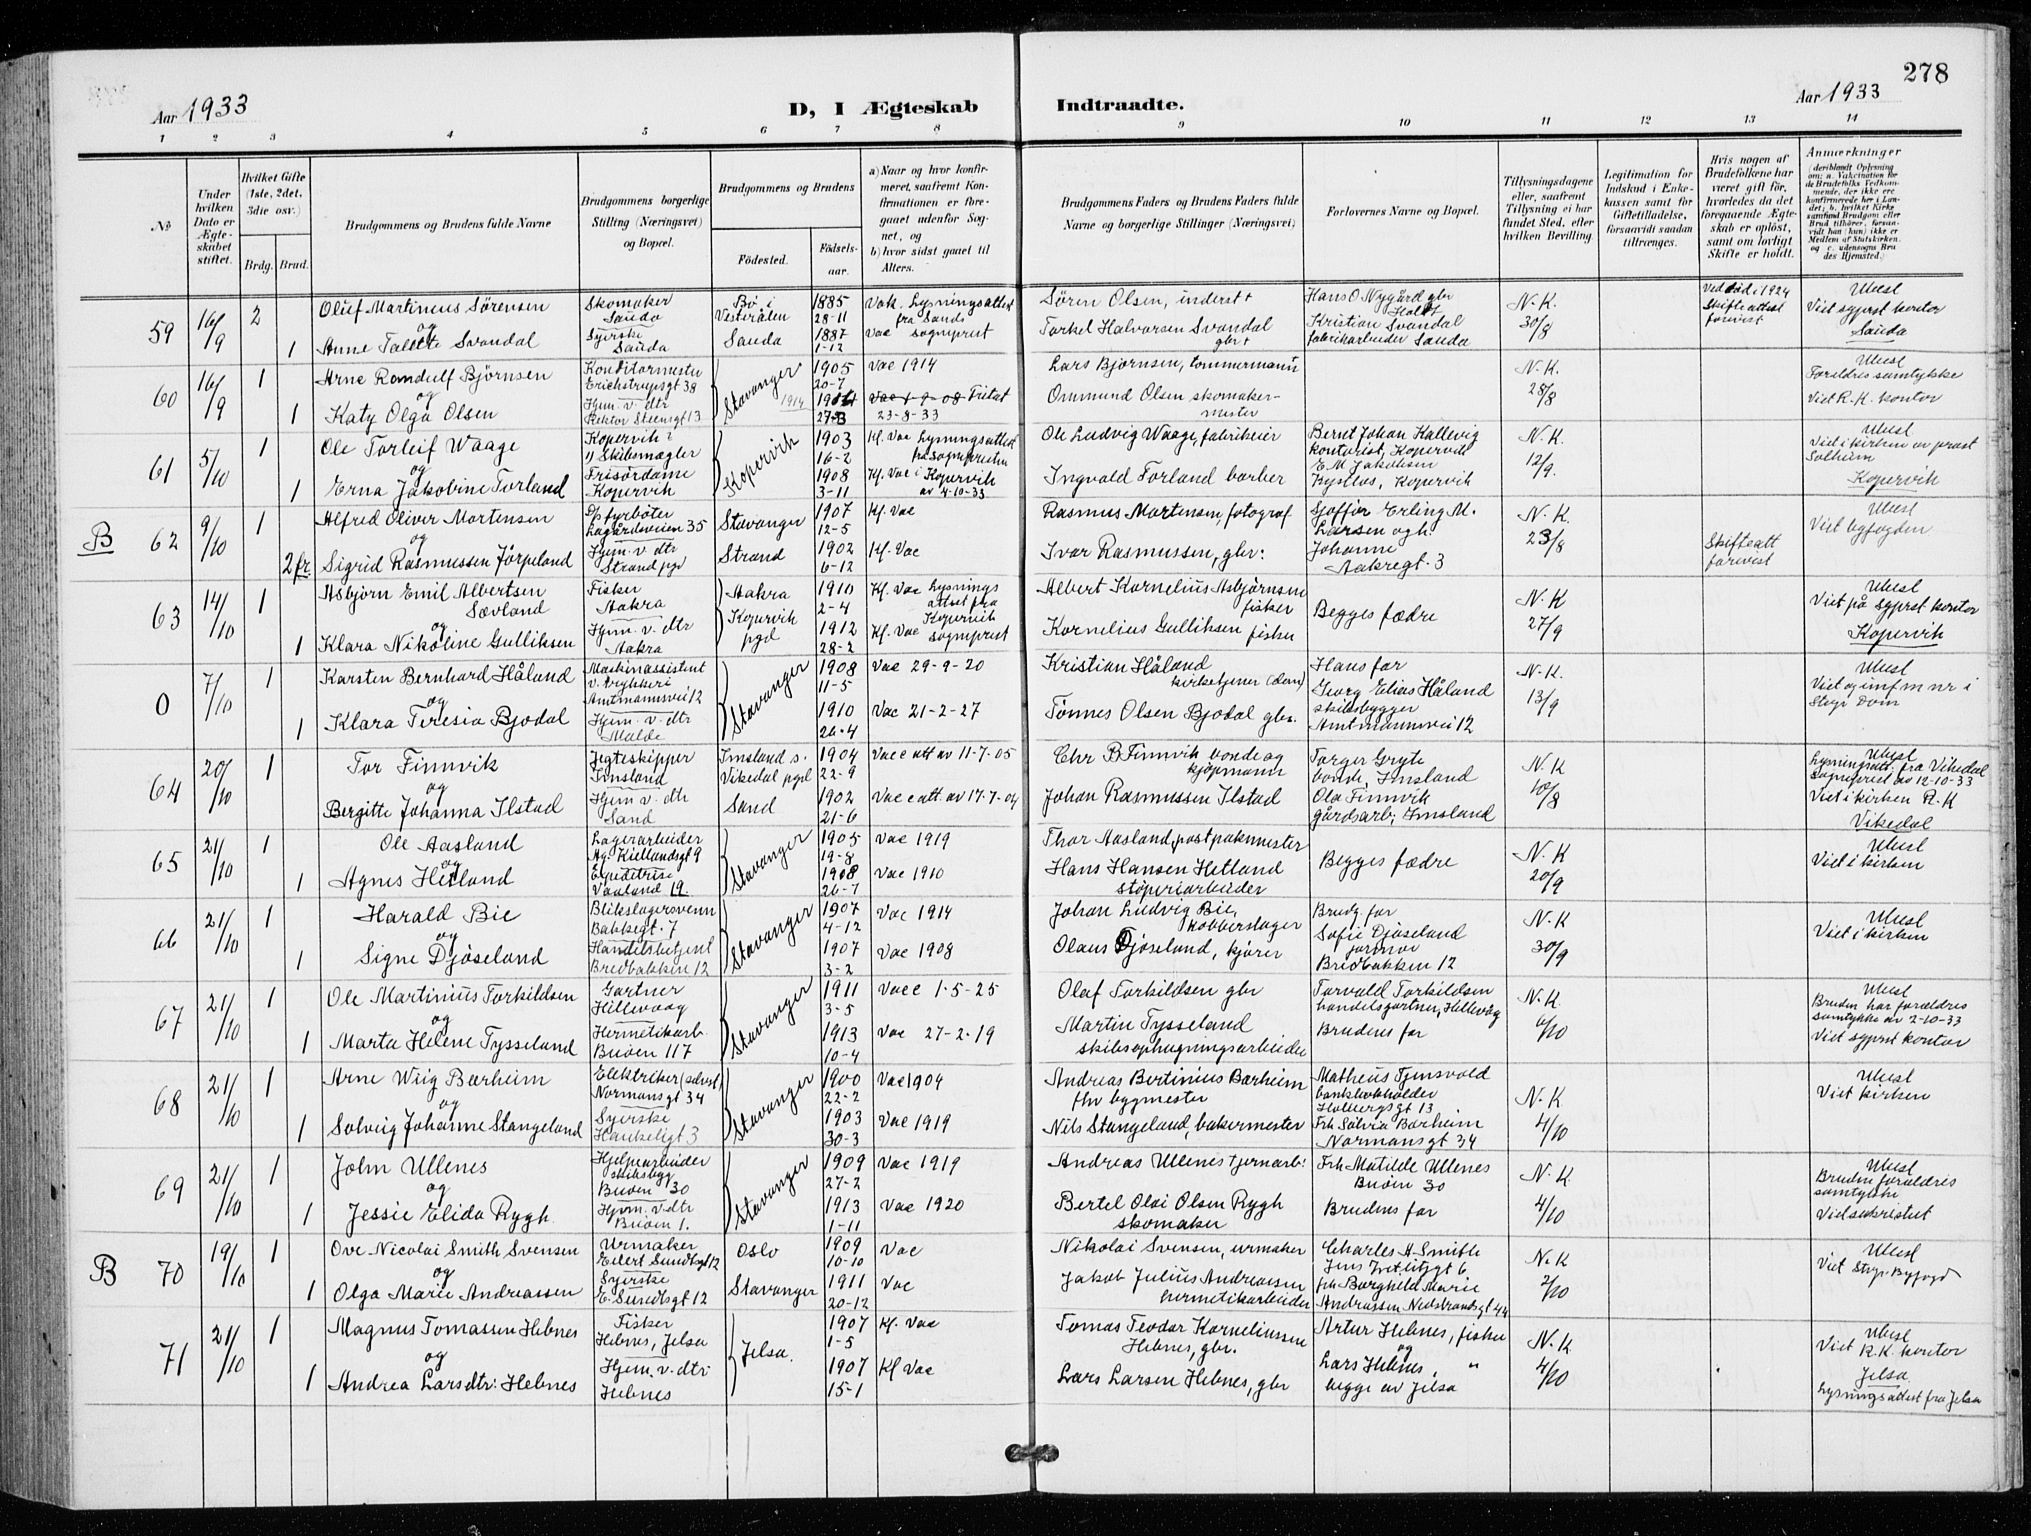 278
Aar 1933
D, I Ægteskab Indtraadte.
Aar 1933
1 2 3 4 5 6 7 8 9 10 11 12 13 14
№
Under hvilken Dato er Ægteskabet stiftet.
Hvilket Gifte (1ste, 2det, 3die osv.)
Brdg. Brud.
Brudgommens og Brudens fulde Navne
Brudgommens borgerlige Stilling (Næringsvei) og Bopæl.
Brudgommens og Brudens
Fødested.
Fødselsaar.
a) Naar og hvor konfirmeret, saafremt Konfirmationen er foregaaet udenfor Sognet, og
b) hvor sidst gaaet til Alters.
Brudgommens Faders og Brudens Faders fulde Navne og borgerlige Stillinger (Næringsvei)
Forlovernes Navne og Bopæl.
Tillysningsdagene eller, saafremt Tillysning ei har fundet Sted, efter hvilken Bevilling.
Legitimation for Indskud i Enkekassen samt for Giftetilladelse, forsaavidt saadan tiltrænges.
Hvis nogen af Brudefolkene har været gift før, hvorledes da det foregaaende Ægteskab er opløst, samt om lovligt Skifte er holdt.
Anmærkninger (deriblandt Oplysning om: a. Vakcination for de Brudefolks Vedkommende, der ikke ere konfirmerede her i Landet; b. hvilket Kirkesamfund Brudgom eller Brud tilhører, forsaavidt han (hun) ikke er Medlem af Statskirken, og c. udensogns Brudes Hjemsted.)
59 16/9 2 Oluf Martinius Sørensen Skomaker Sauda Bø i Vesterålen 1885 28-11 Vak. Lysningsattest fra Sauda Søren Olsen, inderst + Hans O. Nygård gbr N.K. 30/8 Ved død i 1924 Skifteattest forevist Ubesl Viet sgprst kontor
og
1 Anne Talette Svandal Syerske Sauda Sauda 1887 1-12 Vac sogneprest Torkel Halvorsen Svandal gbr + Kristian Svandal fabrikarbeider Sauda Sauda
60 16/9 1 Arne Randulf Bjørnsen Konditormester Erichstrupsgt 38 Stavanger 1905 20-7 Vac 1914 Lars Bjørnsen, tømmermann N.K. 28/8 Ubesl Foreldres samtykke
og
1 Katy Olga Olsen Hjem. v. dtr Rektor Steensgt 13 1914 23-8-33 Ommund Olsen skomakermester Viet R.K. kontor
61 5/10 1 Ole Torleif Waage Kopervik Skibsmægler Kopervik 1903 16-2 Kf. Vac Lysningsattest fra sogneprsten Ole Ludvig Waage, fabrikeier Bernt Johan Kallevig kontorist, Kopervik N.K. 12/9 Ubesl Viet i kirken av prost Solheim
og
1 Erna Jakobine Torland Frisørdame Kopervik 1908 3-11 Kf. Vac i Kopervik av 4-10-33 Ingvald Torland barber E M Jakobsen Kopervik Kopervik
B 62 9/10 1 Alfred Oliver Mortensen fyrbøter Lagårdsveien 35 Stavanger 1907 12-5 Kf. Vac Rasmus Mortensen, fotograf Sjåffør Erling M. Larsen og h. N.K. 23/8 Ubesl Viet byfogden
og
2 fr. Sigrid Rasmussen Jørpeland Hjem. v dtr Strand pgd Strand 1902 6-12 Kf. Vac Ivar Rasmussen, gbr: Johanne Aakregt. 3 Skifteatt forevist
63 14/10 1 Asbjørn Emil Albertsen Sævland Fisker Aakra Aakra 1910 2-4 Kf. Vac Lysnings attest fra Kopervik Albert Kornelius Asbjørnsen fisker Begges fædre N.K 27/9 Ubesl Viet på sgprst kontor
og
1 Klara Nikoline Gulliksen Hjem. v. dtr Aakra Kopervik pgd 1912 28-2 Kf. Vac sogneprest Kornelius Gulliksen fisker Kopervik
0 7/10 1 Karsten Bernhard Håland Maskinassistent v. trykkeri Amtmannsvei 12 Stavanger 1908 11-5 Vac 29-9-20 Kristian Håland kirketjener Hans far Georg Elias Håland skibsbygger Amtmannsvei 12 N.K. 13/9 Ubesl
og
1 Klara Teresia Bjødal Hjem. v. dtr Malde 1910 26-4 Vac 21-2-27 Tønnes Olsen Bjødal gbr.
64 20/10 1 Tor Finnvik Jegteskipper Imsland Imsland s. Vikedal pgd 1904 22-9 Vacc att av 11-7-05 Chr B Finnvik bonde og kjøpmann Torger Gryte bonde, Imsland N.K 10/8 Ubesl Lysningsatt. fra Vikedal sogneprest av 12-10-33
og
1 Bergitte Johanna Ilstad Hjem v. dtr Sand Sand 1902 21-6 Vacc att. av 17-7-04 Johan Rasmussen Ilstad Ola Finnvik gårdsarb, Imsland Viet i kirken R.K Vikedal
65 21/10 1 Ole Aasland Lagerarbeider Kiellandsgt 9 Stavanger 1905 19-8 Vac 1919 Thor Aasland, postpakmester Begges fædre N.K 20/9 Ubesl Viet i kirken
og
1 Agnes Hetland Expeditrise Vaaland 19. 1908 26-7 Vac 1910 Hans Hansen Hetland støperiarbeider
66 21/10 1 Harald Bie Blikslagersvenn Bakkegt. 7 Stavanger 1907 4-12 Vac 1914 Johan Ludvig Bie, kobberslager Brudg. far N.K 30/9 Ubesl Viet i kirken
og
1 Signe Djøseland Handelsbetjent Bredbakken 12 1907 3-2 Vac 1908 Olaus Djøseland, kjører Sofie Djøseland Bredbakken 12
67 21/10 1 Ole Martinius Torkildsen Gartner Hillevaag Stavanger 1911 3-5 Vacc 1-5-25 Olaf Torkildsen gbr Torvald Torkildsen handelsgartner, Hillevåg N.K. 6/10 Ubesl Bruden har forældres samtykke av 2-10-33
og
1 Marta Helene Tysseland Hermetikarb. Buøen 117 1913 10-4 Vac 27-2-19 Martin Tysseland skibsophugningsarbeider Brudens far Viet sgprst kontor
68 21/10 1 Arne Wiig Bærheim Elektriker Normansgt 34 Stavanger 1900 22-2 Vac 1904 Andreas Bertinius Bærheim fhv bygmester Matheus Tjensvold bankbokholder Holbergsgt 13 N.K 4/10 Ubesl Viet kirken
og
1 Solveig Johanne Stangeland Syerske Haukeligt 3 1903 30-3 Vac 1919 Nils Stangeland, bakermester Frk Sølvia Bærheim Normansgt 34
69 21/10 1 John Ullenes Hjelpearbeider skibsbygg Buøen 30 Stavanger 1909 27-2 Vac 1919 Andreas Ullenes Frk Matilde Ullenes Buøen 30 N.K. 4/10 Ubesl Bruden foreldres samtykke
og
1 Jessie Elida Rygh Hjem. v. dtr Buøen 1. 1913 1-11 Vac 1920 Bertel Olai Olsen Rygh skomaker Brudens far
B 70 19/10 1 Ove Nicolai Smith Svensen Urmaker Eilert Sundtsgt 12 Oslo 1909 10-10 Vac Nikolai Svensen, urmaker Charles A Smith N.K 2/10 Ubesl Viet Byfogd
og
1 Olga Marie Andreassen Syerske E. Sundtsgt 12 Stavanger 1911 20-12 Vac Jakob Julius Andreassen hermetikarbeider frk Borghild Marie Andreassen Nedstrandsgt 44
71 21/10 1 Magnus Tomassen Hebnes Fisker Hebnes, Jelsa Jelsa. 1907 1-5 Kf. Vac Tomas Teodor Korneliussen Hebnes, gbr. Artur Hebnes, fisker og N.K 4/10 Ubesl Viet R.K. kontor
og
1 Andrea Larsdtr: Hebnes Hjem. v. dtr. Hebnes 1907 15-1 Kf Vac Lars Larsen Hebnes, gbr Lars Hebnes " begge av Jelsa Jelsa. Lysningsattest fra Jelsa